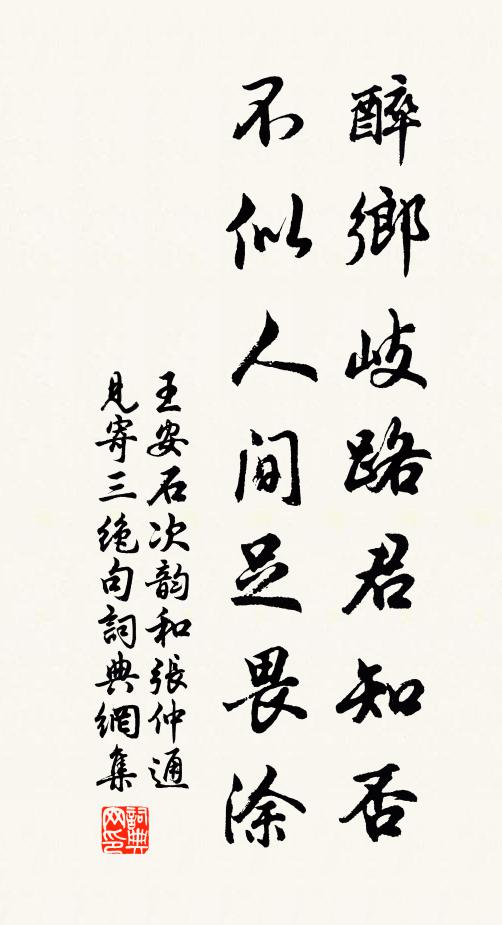 醉鄉岐路君知否
不似人間足畏涂
王安石次韵和張仲通
見寄三絶句詞典網集
詞典
网印